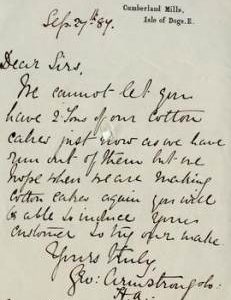 Cumberland Mills,
Isle of Dogs. E.
Sep. 27th 87.
Dear Sirs,
We cannot let you
have 2 Tons of our cotton
cakes just now as we have
run out of them but we
hope when we are making
cotton cakes again you will
be able to induce your
customer to try our make
Yours truly,
Geo: Armstrong &Co: